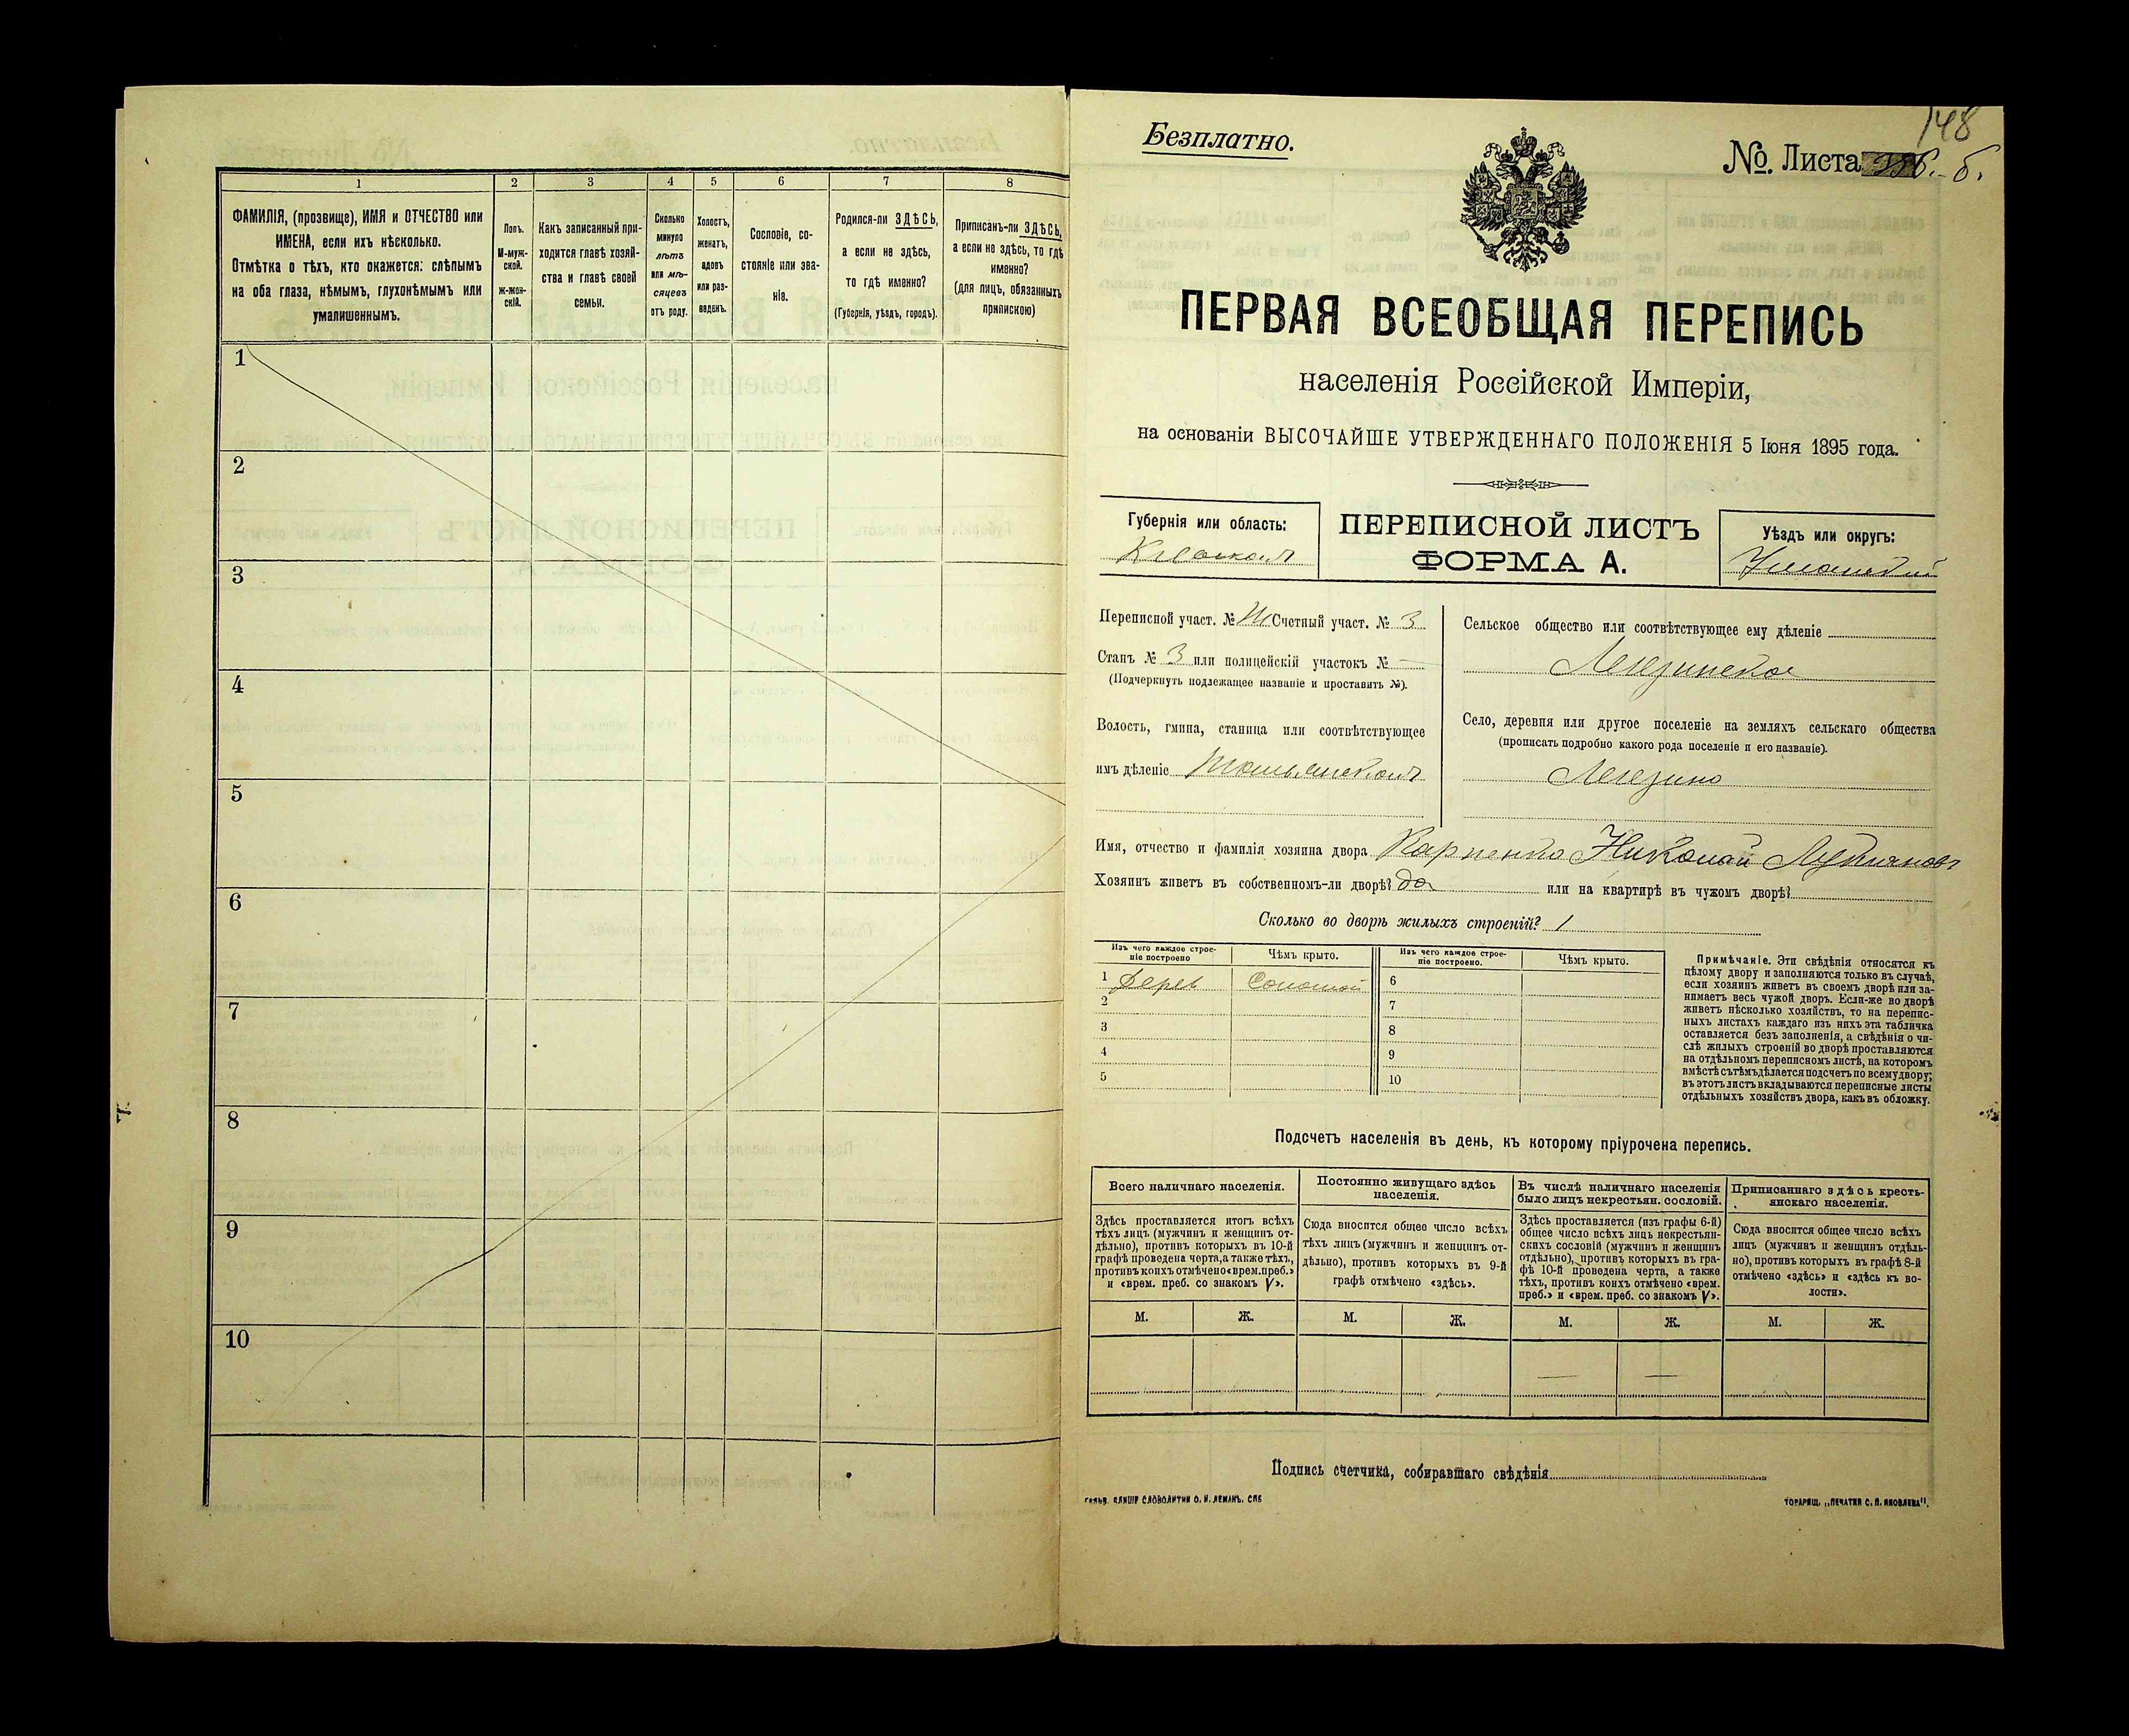 1
2
3
4
5
6
7
8
ФАМИЛІЯ, (прозвище), ИМЯ и ОТЧЕСТВО или
ИМЕНА, если ихъ нѣсколько.
Отмѣтка о тѣхъ, кто окажется: слѣпымъ
на оба глаза, нѣмымъ, глухонѣмымъ или
умалишеннымъ.
Полъ.
М-муж-
ской.
ж-жен-
скій.
Какъ записанный при-
ходится главѣ хозяй-
ства и главѣ своей
семьи.
Сколько
минуло
лѣтъ
или мѣ-
сяцевъ
отъ роду.
Холостъ,
женатъ,
вдовъ
или раз-
веденъ.
Сословіе, со-
стояніе или зва-
ніе.
Родился-ли ЗДѢСЬ,
а если не здѣсь,
то гдѣ именно?
(Губернія, уѣздъ, городъ).
Приписанъ-ли ЗДѢСЬ,
а если не здѣсь, то гдѣ
именно?
(для лицъ, обязанныхъ
припискою)
1
2
3
4
5
6
7
8
9
10
148
Безплатно.
№. Листа
б.
ПЕРВАЯ ВСЕОБЩАЯ ПЕРЕПИСЬ
населенія Россійской Имперіи,
на основаніи ВЫСОЧАЙШЕ УТВЕРЖДЕННАГО ПОЛОЖЕНІЯ 5 Іюня 1895 года.
Губернія или область:
Кіевская
ПЕРЕПИСНОЙ ЛИСТЪ
ФОРМА А.
Уѣздъ или округъ:
Уманскій
Переписной участ. № III Счетный участ. № 3
Станъ № 3 или полицейскій участокъ № —
(Подчеркнуть подлежащее названіе и проставить №).
Волость, гмина, станица или соотвѣтствующее
имъ дѣленіе Тальянская
Сельское общество или соотвѣтствующее ему дѣленіе
Легезинское
Село, деревня или другое поселеніе на земляхъ сельскаго общества
(прописать подробно какого рода поселеніе и его названіе).
Легезино
Имя, отчество и фамилія хозяина двора Карпенко Николай Лукьяновъ
Хозяинъ живетъ въ собственномъ-ли дворѣ? да или на квартирѣ въ чужомъ дворѣ?
Сколько во дворѣ жилыхъ строеній? 1
Изъ чего каждое строе-
ніе построено
Чѣмъ крыто.
Изъ чего каждое строе-
ніе построено.
Чѣмъ крыто.
1 Дерев Соломой
2
3
4
5
6
7
8
9
10
Примѣчаніе. Эти свѣдѣнія относятся къ
цѣлому двору и заполняются только въ случаѣ,
если хозяинъ живетъ въ своемъ дворѣ или за-
нимаетъ весь чужой дворъ. Если-же во дворѣ
живетъ нѣсколько хозяйствъ, то на перепис-
ныхъ листахъ каждаго изъ нихъ эта табличка
оставляется безъ заполненія, а свѣдѣнія о чи-
слѣ жилыхъ строеній во дворѣ проставляются
на отдѣльномъ переписномъ листѣ, на которомъ
вмѣстѣ съ тѣмъ дѣлается подсчетъ по всему двору;
въ этотъ листъ вкладываются переписные листы
отдѣльныхъ хозяйствъ двора, какъ въ обложку.
Подсчетъ населенія въ день, къ которому пріурочена перепись.
Всего наличнаго населенія.
Постоянно живущаго здѣсь
населенія.
Въ числѣ наличнаго населенія
было лицъ некрестьян. сословій.
Приписаннаго здѣсь кресть-
янскаго населенія.
Здѣсь проставляется итогъ всѣхъ
тѣхъ лицъ (мужчинъ и женщинъ от-
дѣльно), противъ которыхъ въ 10-й
графѣ проведена черта, а также тѣхъ,
противъ коихъ отмѣчено «врем. преб.»
и «врем. преб. со знакомъ V».
Сюда вносится общее число всѣхъ
тѣхъ лицъ (мужчинъ и женщинъ от-
дѣльно), противъ которыхъ въ 9-й
графѣ отмѣчено «здѣсь».
Здѣсь проставляется (изъ графы 6-й)
общее число всѣхъ лицъ некрестьян-
скихъ сословій (мужчинъ и женщинъ
отдѣльно), противъ которыхъ въ гра-
фѣ 10-й проведена черта, а также
тѣхъ, противъ коихъ отмѣчено «врем.
преб.» и «врем. преб. со знакомъ V».
Сюда вносится общее число всѣхъ
лицъ (мужчинъ и женщинъ отдѣль-
но), противъ которыхъ въ графѣ 8-й
отмѣчено «здѣсь» и «здѣсь къ во-
лости».
М. Ж. М. Ж. М. Ж. М. Ж.
— —
Подпись счетчика, собиравшаго свѣдѣнія
ГАЛЬВ. КЛИШЕ СЛОВОЛИТНИ О. И. ЛЕМАНЪ. СПБ
ТОВАРИЩ. „ПЕЧАТНЯ С. П. ЯКОВЛЕВА".